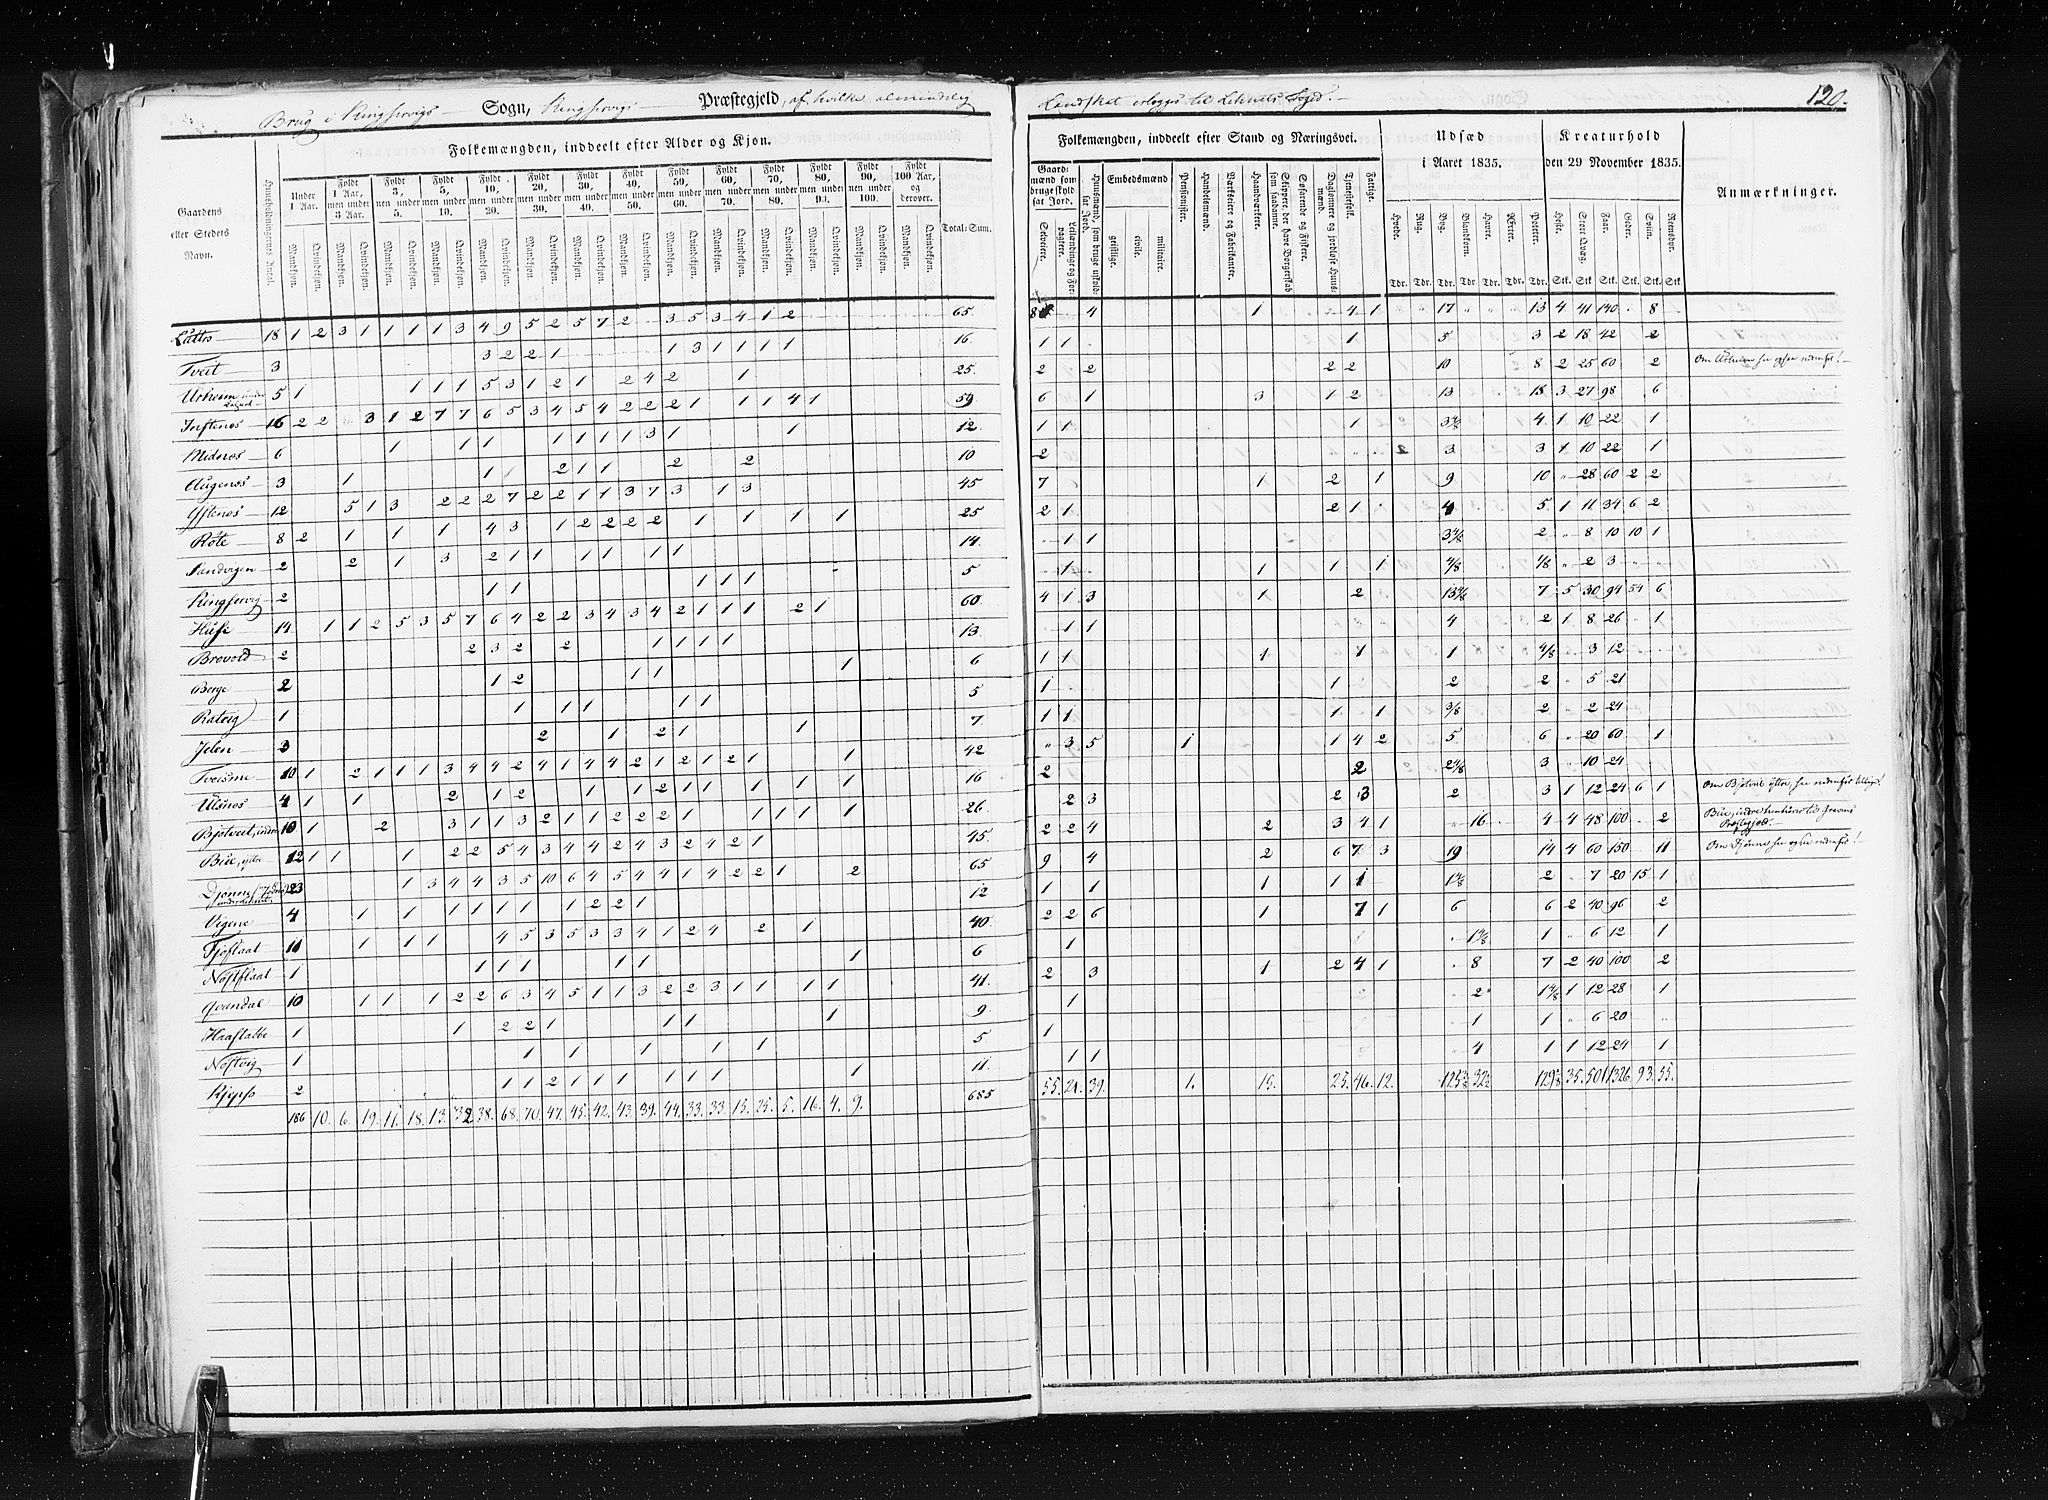 Brug i Kingservigs Sogn, Kingservigs Præstegjeld, af hvilke almindelig
Landskat erlegges til Lehnets Foged.
120.
Folkemængden, inddeelt efter Alder og Kjøn.
Gaardens eller Stedets Navn.
Huusholdningernes Antal.
Under 1 Aar.
Fyldt 1 Aar, men under 3 Aar.
Fyldt 3, men under 5.
Fyldt 5, men under 10.
Fyldt 10, men under 20.
Fyldt 20, men under 30.
Fyldt 30, men under 40.
Fyldt 40, men under 50.
Fyldt 50, men under 60.
Fyldt 60, men under 70.
Fyldt 70, men under 80.
Fyldt 80, men under 90.
Fyldt 90, men under 100.
Fyldt 100 Aar, og derover.
Mandkjøn. Qvindekjøn.
Total-Sum.
Folkemængden, inddeelt efter Stand og Næringsvei.
Gaardmænd som bruge skyldsat Jord.
Selveiere.
Leilændinge og Forpagtere.
Huusmænd, som bruge uskyldsat Jord.
Embedsmænd
geistlige.
civile.
militaire.
Pensionister.
Handelsmænd.
Værkseiere og Fabrikanter.
Haandværkere.
Skippere, der have Borgerskab som saadanne.
Søfarende og Fiskere.
Daglønnere og jordløse Huusmænd.
Tjenestefolk.
Fattige.
Udsæd i Aaret 1835.
Hvede. Rug. Byg. Blandkorn. Havre. Ærter. Poteter.
Tdr. Tdr. Tdr. Tdr. Tdr. Tdr. Tdr.
Kreaturhold den 29 November 1835.
Heste. Stort Qvæg. Faar. Geder. Sviin. Rensdyr.
Stk. Stk. Stk. Stk. Stk. Stk.
Anmærkninger.
Lutnes 18 1 2 3 1 1 1 1 3 4 9 5 2 5 7 2 3 5 3 4 1 2 65
Tveit 3 3 2 2 1 1 3 1 1 1 1 16
Urheim 5 1 1 1 1 5 3 1 2 1 2 4 2 1 25
Instenes 16 2 2 3 1 2 7 7 6 5 3 4 5 4 2 2 2 1 1 1 4 1 59
Midnes 6 1 1 1 1 1 1 1 3 1 1 12
Augenes 3 1 1 2 1 1 2 2 10
Ystenes 12 5 1 3 2 2 2 7 2 2 1 1 3 7 3 1 3 45
Røte 8 2 1 1 1 4 3 1 2 2 2 2 1 1 1 1 25
Sandvigen 2 2 1 3 2 1 1 1 1 1 1 14
Kingservig 2 1 1 1 1 1 5
Huse 14 1 1 2 5 3 5 7 6 4 2 2 3 4 3 4 2 1 1 1 2 1 60
Brevold 2 2 3 2 2 1 1 1 1 13
Berge 2 1 2 1 1 1 6
Ratvig 1 1 1 1 1 1 5
Jelen 3 2 1 2 1 1 7
Tveisme 10 1 2 1 1 1 3 4 4 2 4 1 4 4 2 1 2 1 2 1 1 42
Ulsnes 4 1 1 2 1 2 1 1 2 1 1 1 1 1 16
Bjotveit, indre 10 1 2 3 1 1 3 2 1 1 2 2 2 1 1 1 1 1 26
Bue, ytre 12 1 1 1 2 2 5 4 3 4 4 2 4 3 2 4 2 1 45
Djønne 23 1 3 4 4 3 5 10 6 4 5 4 4 1 4 2 2 1 2 65
Vigene 4 1 1 1 1 1 1 1 2 2 1 12
Tjoflaat 11 1 1 1 4 5 3 5 3 3 4 1 2 4 2 1 40
Nostflaat 1 1 1 1 1 1 1 6
Qvandal 10 1 1 1 2 2 6 3 4 5 1 1 3 2 2 3 1 1 1 1 41
Haastabbe 1 1 2 2 1 1 1 1 9
Nostvig 1 1 1 1 1 1 5
Ripps 2 1 1 2 1 1 1 1 1 1 1 11
186 10. 6. 19. 11. 18. 13. 32 38. 68. 70. 47. 45. 42. 43. 39. 44. 33. 33. 15. 25. 5. 16. 4. 9. 685
8 4 1 4 1 17 13 4 41 140 8
1 1 1 5 3 2 18 42 2
2 2 2 2 10 8 2 25 60 2
6 1 3 1 2 13 18 3 27 98 6
1 1 1 3 4/8 4 1 10 22 1
2 3 3 1 10 22 1
7 1 2 1 9 10 28 60 2 2
2 1 2 1 4 5 1 11 34 6 2
1 1 3 4/8 2 8 10 10 1
1 1 1 1 4/8 4/8 2 3
4 1 3 1 2 13 4/8 7 5 30 94 54 6
1 1 4 2 1 8 26 1
1 1 1 1 1 4/8 3 12
1 1 2 2 5 21
1 1 1 1 3/8 2 2 24
3 5 1 1 4 2 5 6 20 60 1
2 2 2 4/8 3 10 24
2 3 2 3 2 3 1 12 24 6 1
2 2 4 2 3 4 1 16 4 4 48 100 2
9 4 2 6 7 3 19 14 4 60 150 11
1 1 1 1 1 1 4/8 2 7 20 15 1
2 2 6 1 7 1 6 6 2 40 96 2
1 1 4/8 1 6 12 1
2 3 1 2 4 1 8 7 2 40 100 2
1 2 1 4/8 1 12 28 1
1 1 1 6 20
1 1 4 1 1 12 24 1
55. 21. 39. 1. 15. 25. 46. 12. 129 35. 501 1326 93. 55.